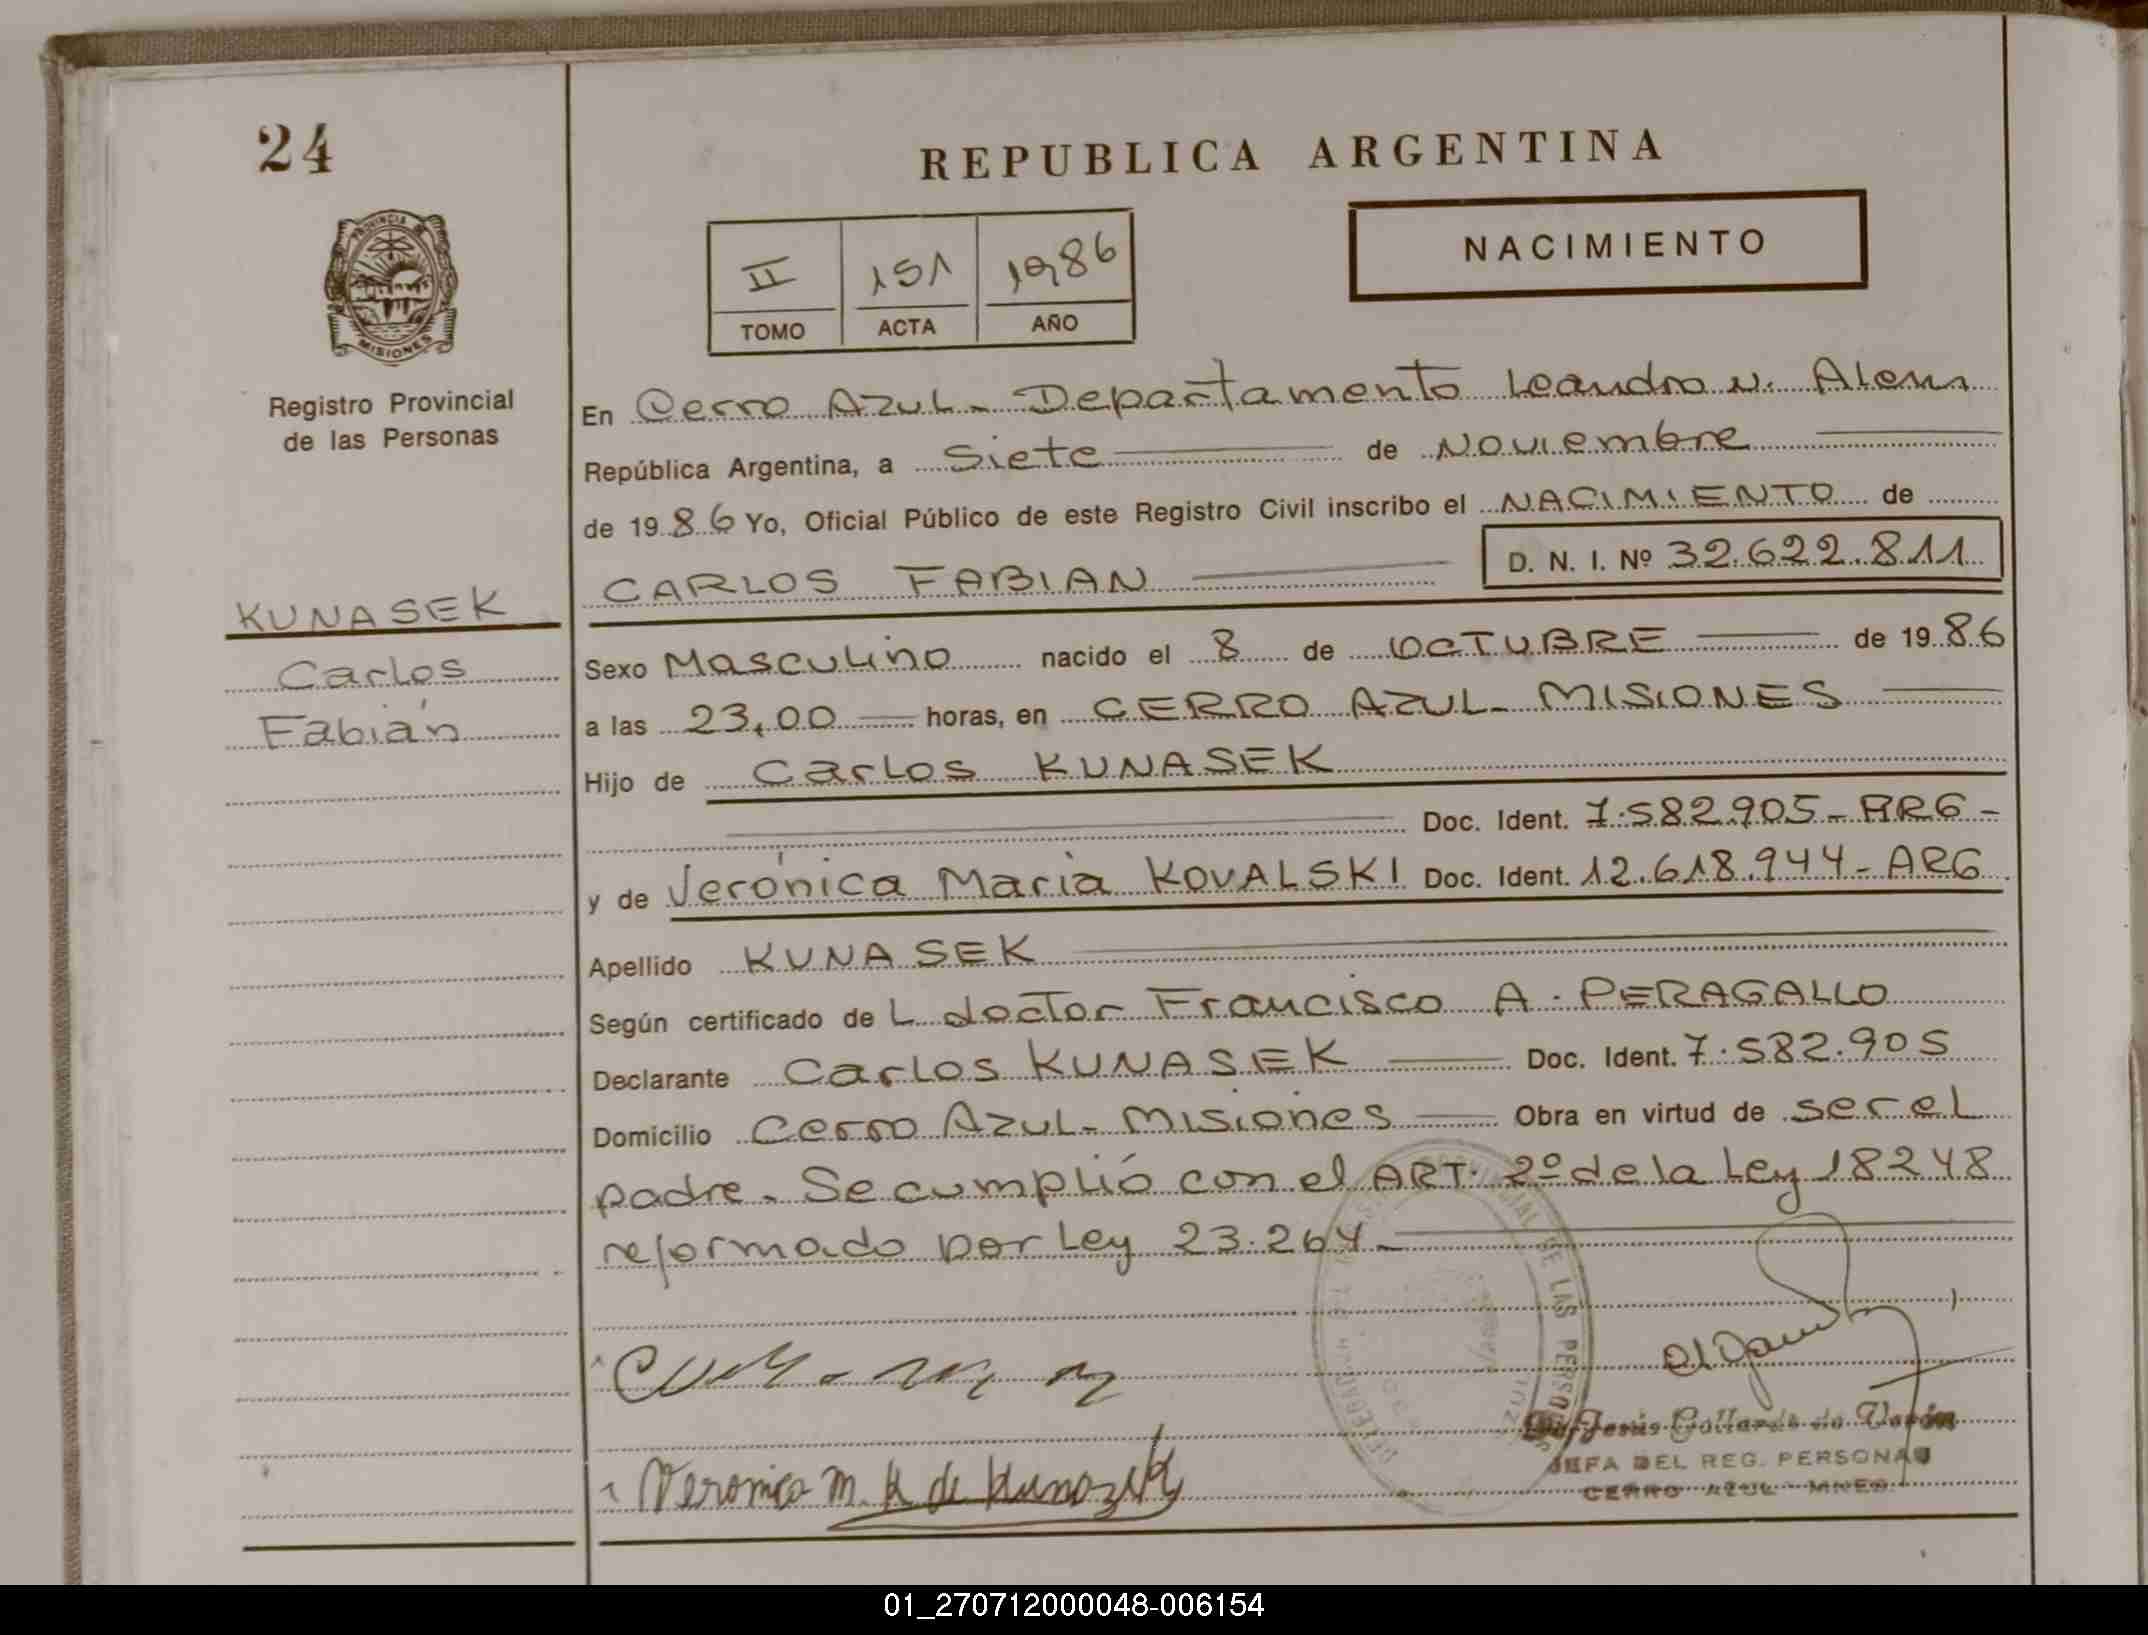 24
REPUBLICA ARGENTINA
PROVINCIA DE
MISIONES
II 151 1986
TOMO ACTA AÑO
NACIMIENTO
Registro Provincial
de las Personas
KUNASEK
Carlos
Fabián
En Cerro AZUL - Departamento Leandro N. Alem
República Argentina, a Siete de Noviembre
de 1986 Yo, Oficial Público de este Registro Civil inscribo el NACIMIENTO de
CARLOS FABIAN D. N. I. Nº 32.622.811
Sexo Masculino nacido el 8 de OCTUBRE de 1986
a las 23,00 horas, en CERRO AZUL - MISIONES
Hijo de Carlos KUNASEK
Doc. Ident. 7.582.905 - ARG -
y de Verónica María KOVALSKI Doc. Ident. 12.618.944 - ARG
Apellido KUNASEK
Según certificado de L doctor Francisco A. PERAGALLO
Declarante Carlos KUNASEK Doc. Ident. 7.582.905
Domicilio Cerro Azul - Misiones Obra en virtud de ser el
padre. Se cumplió con el ART. 2º de la Ley 18248
reformado por Ley 23.264 -
Veronica M. K de Kunazek
Jesús Gallardo de Verón
JEFA DEL REG. PERSONAS
CERRO AZUL - MNES.
01_270712000048-006154